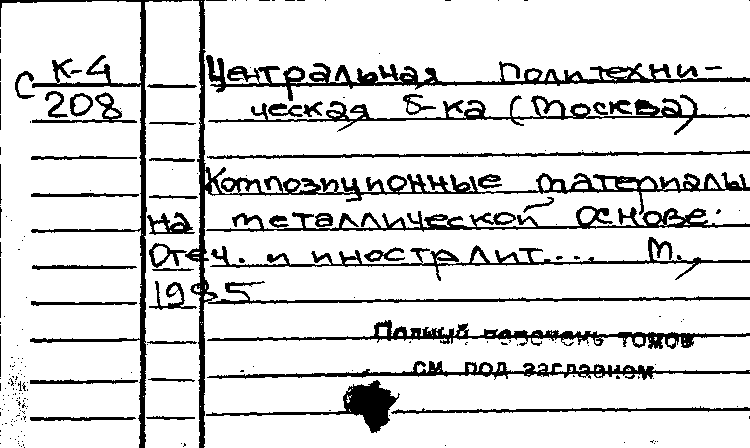 С К-4
208
Центральная Политехни-
ческая б-ка (Москва)
Композиционные материалы
на металлической основе:
Отеч. и иностр. лит.... М.,
1985
Полный перечень томов
см. под заглавием